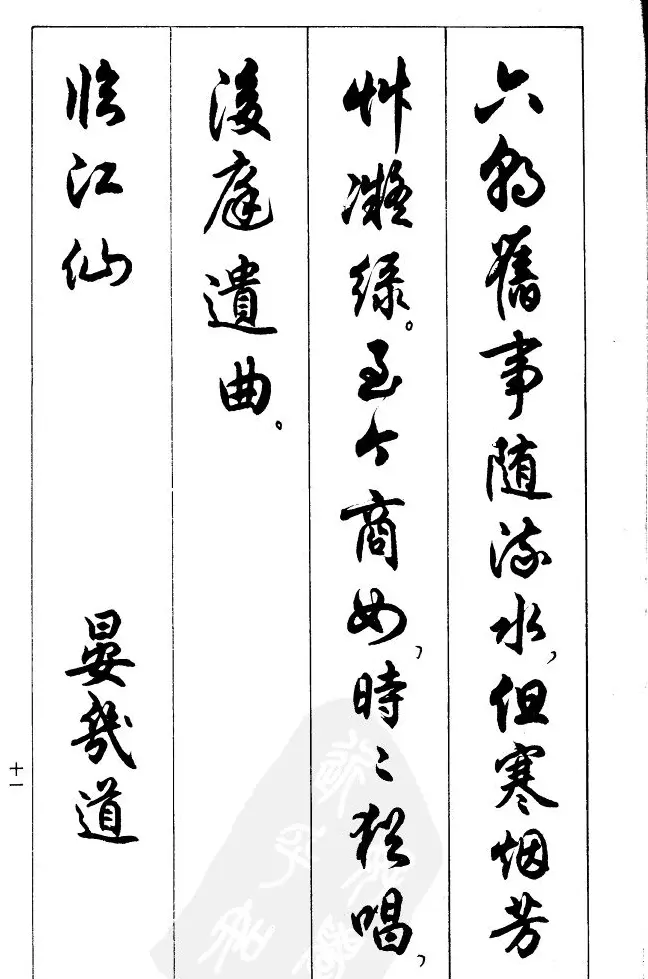 六朝舊事随流水，但寒烟芳
艸凝绿。至今商女，時〻猶唱，
後庭遺曲。
临江仙 晏幾道
十一